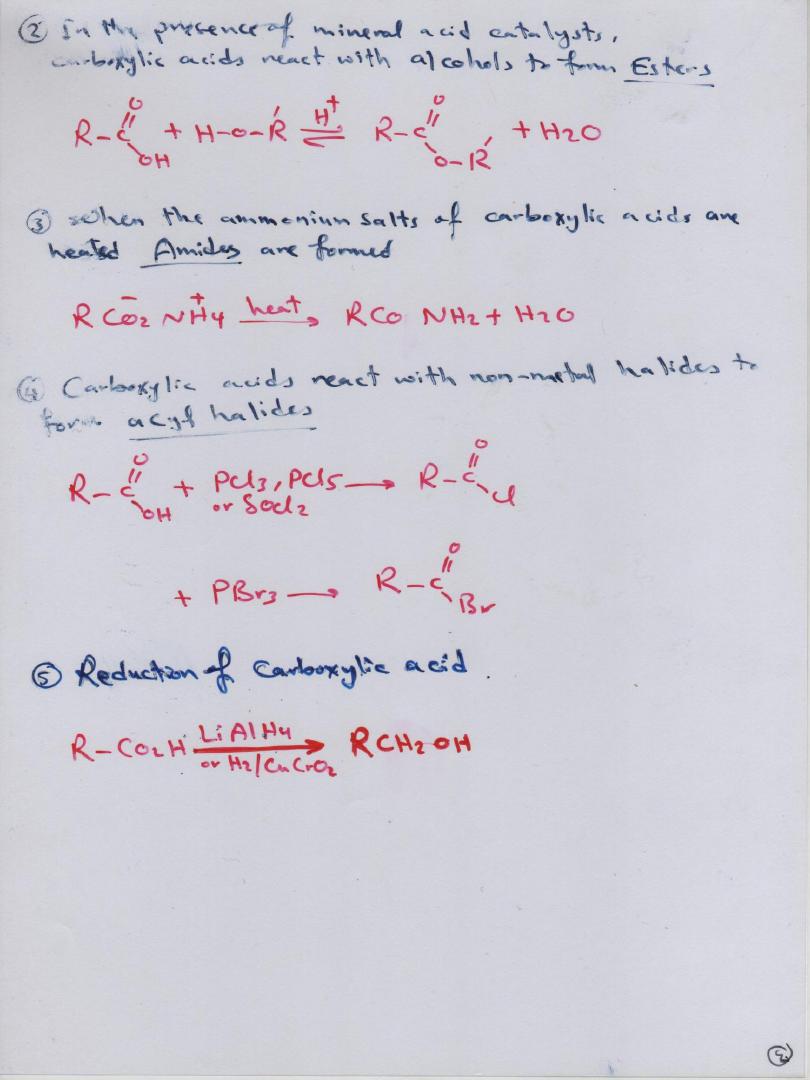 ② In the presence of mineral acid catalysts,
carboxylic acids react with alcohols to form Esters
R-C(=O)OH + H-O-R' ⇌ (H+) R-C(=O)O-R' + H2O
③ When the ammonium salts of carboxylic acids are
heated Amides are formed
RCO2⁻ NH4⁺ heat→ RCO NH2 + H2O
④ Carboxylic acids react with non-metal halides to
form acyl halides
R-C(=O)OH + PCl3, PCl5 or SOCl2 → R-C(=O)Cl
+ PBr3 → R-C(=O)Br
⑤ Reduction of Carboxylic acid.
R-CO2H LiAlH4 or H2/CuCrO2 → RCH2OH